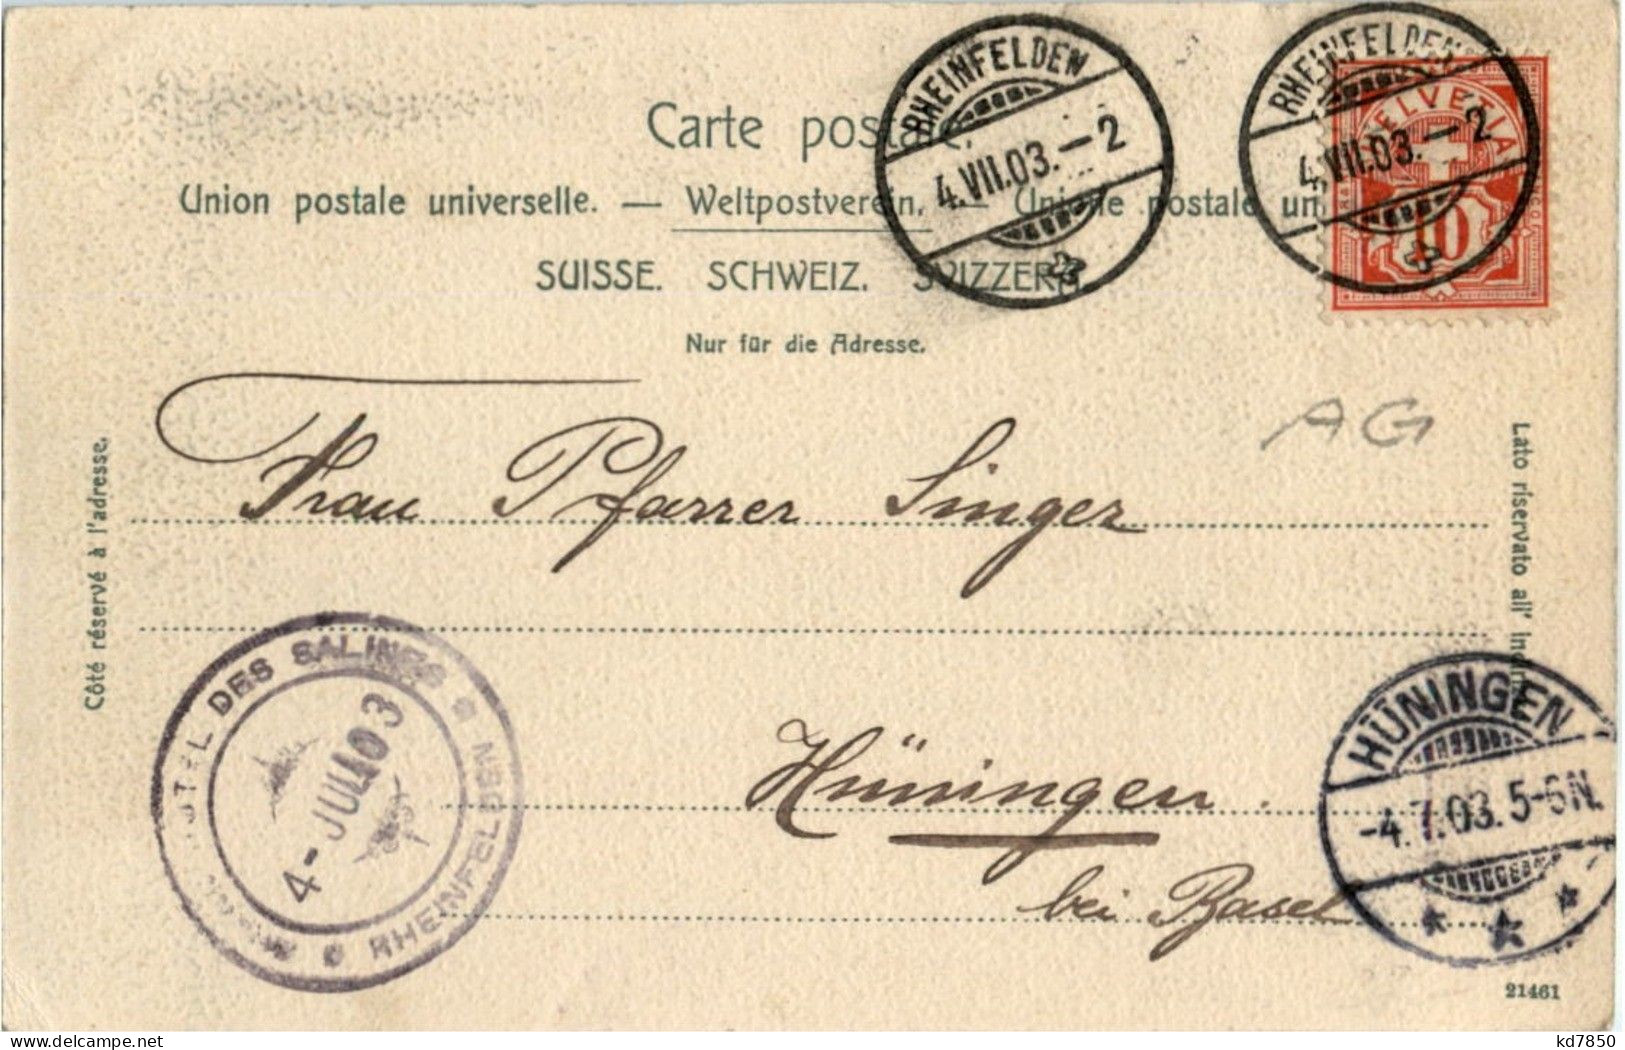 Carte postale.
Union postale universelle. — Weltpostverein. — Unione postale un
SUISSE. SCHWEIZ. SVIZZERA.
Nur für die Adresse.
RHEINFELDEN
4.VII.03.—2
RHEINFELDEN
4.VII.03.—2
HELVETIA
10
AG
Côté réservé à l'adresse.
Lato riservato all'
Frau Pfarrer Singer
Hüningen.
bei Basel
DES SALINES
RHEINFELDEN
4-JUL 03
HÜNINGEN
-4.7.03.5-6N.
21461
kd7850